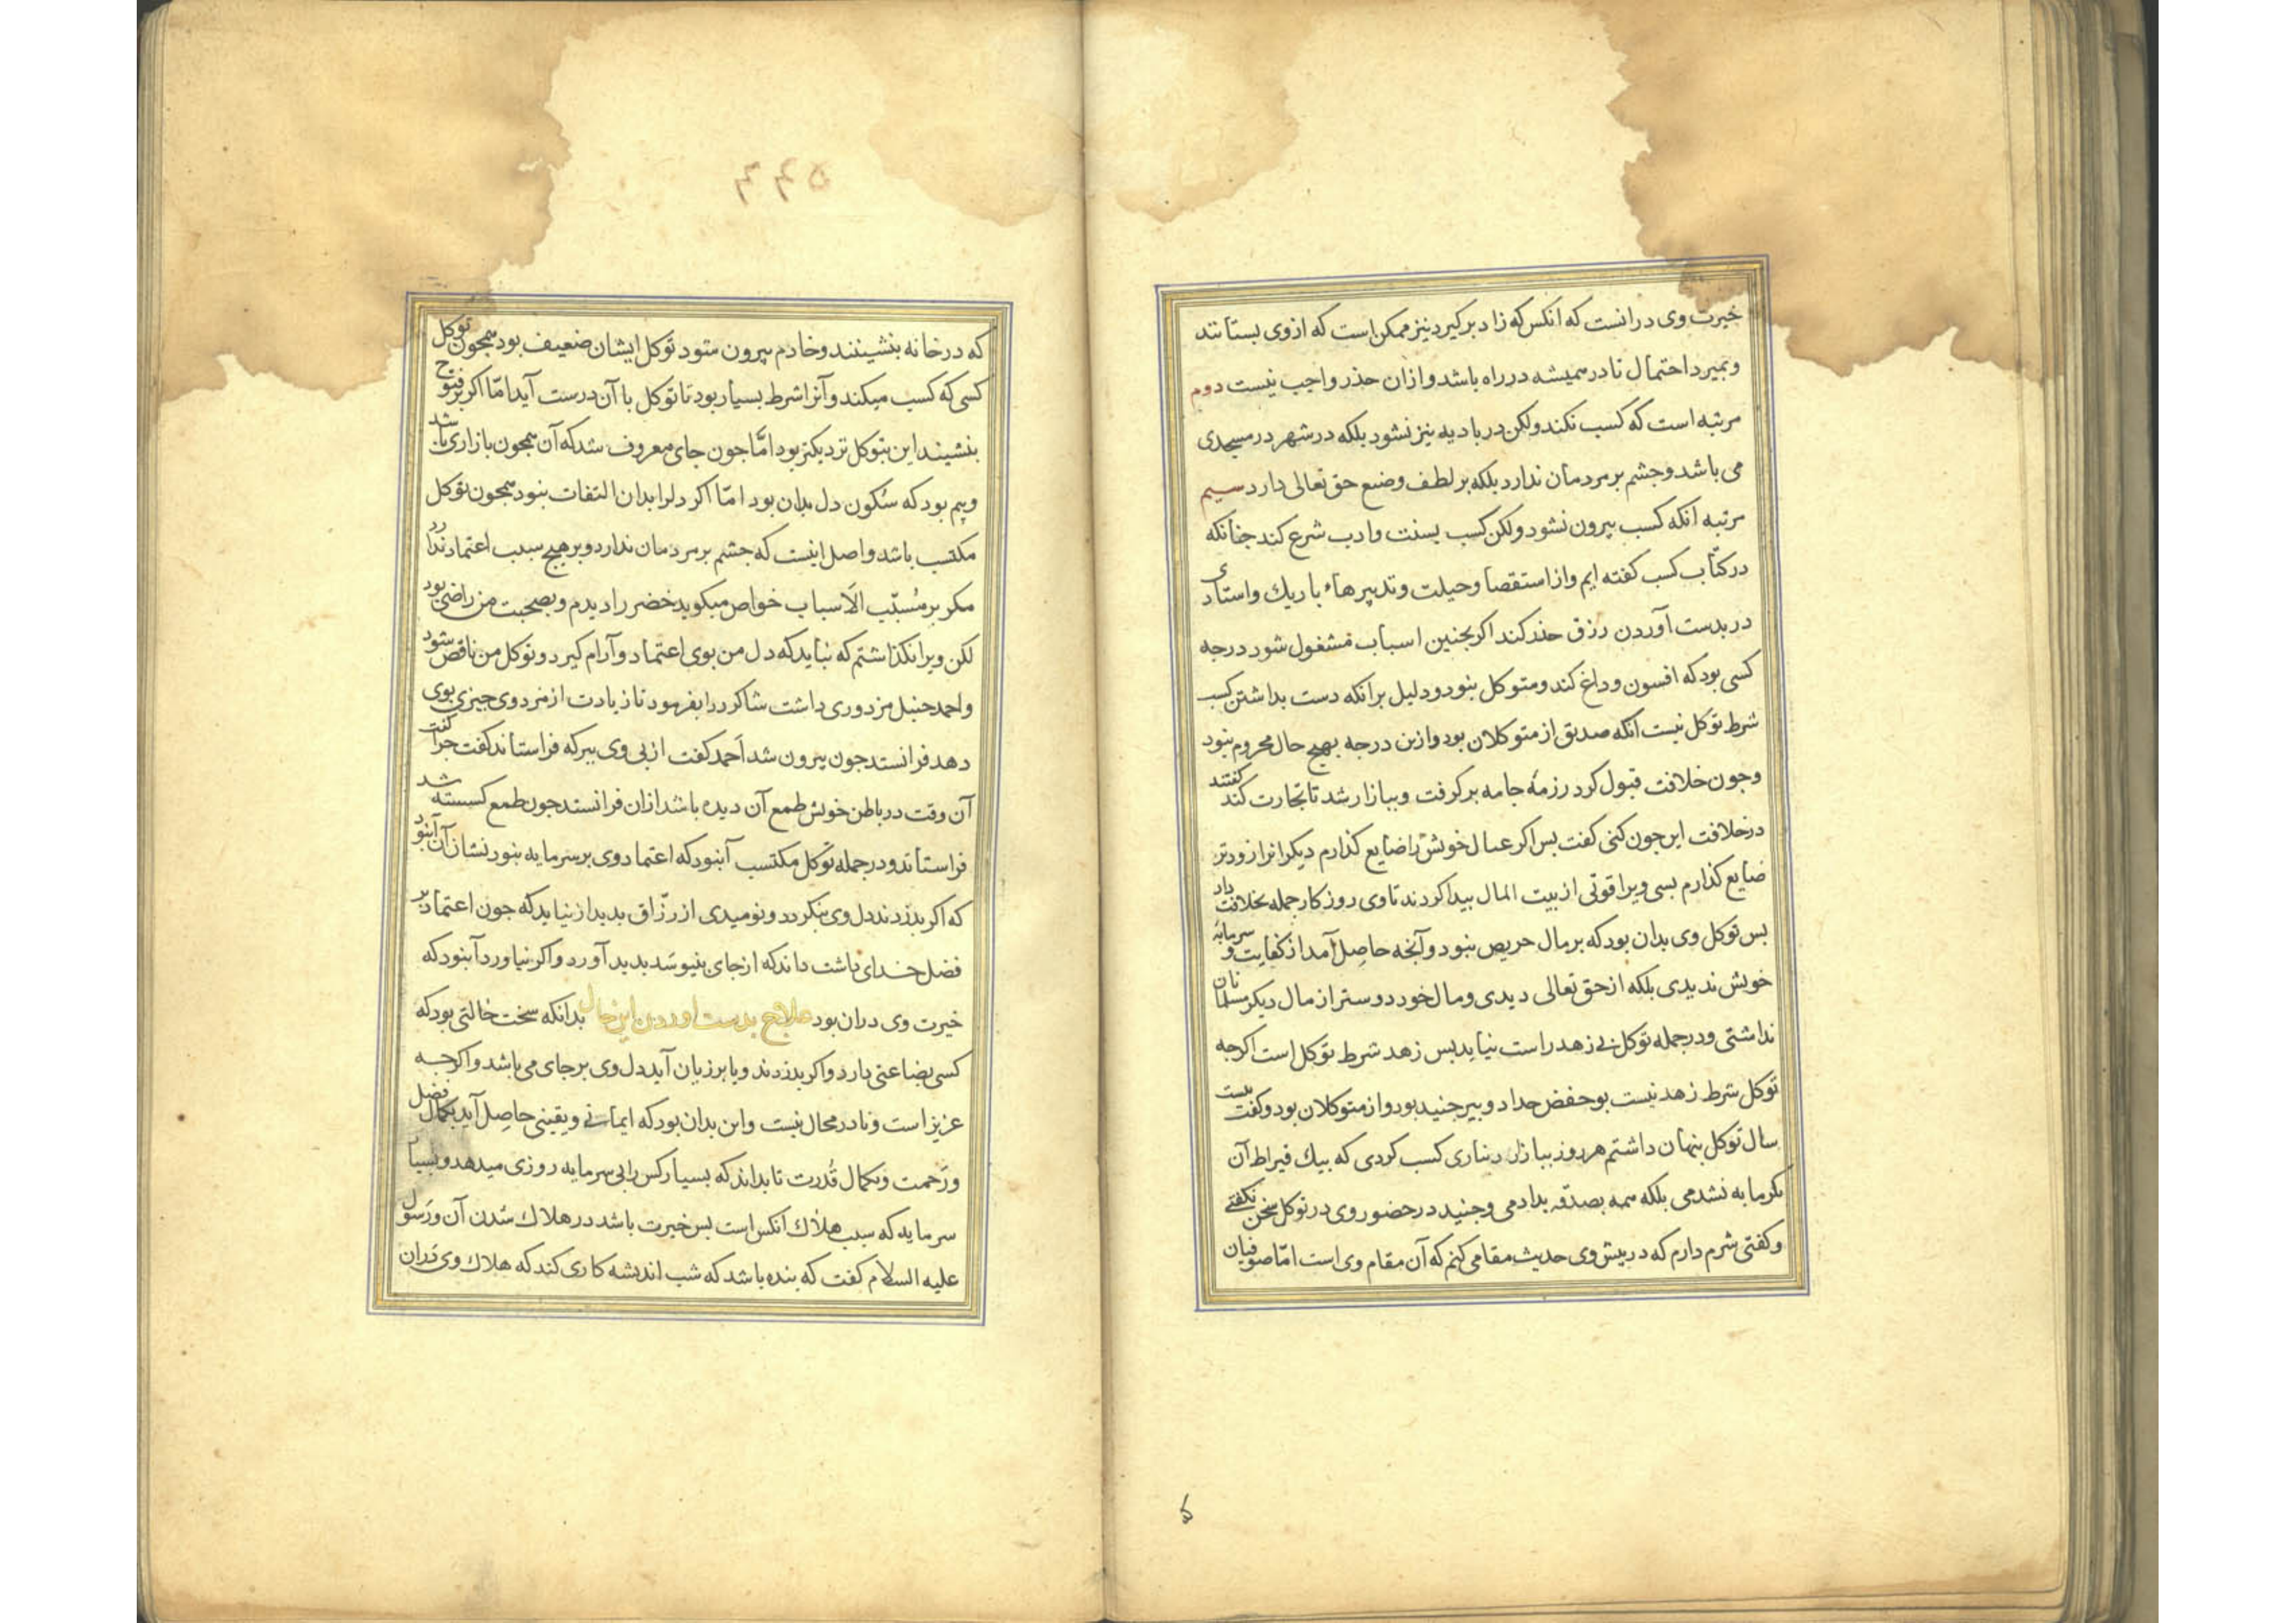 خیرت وی درانست که انکس که زاد برکیرد نیز ممکن است که ازوی بستانند
وبمیرد احتمال نادر همیشه در راه باشد وازان حذر واجب نیست دوم
مرتبه است که کسب نکند ولکن در بادیه نیز نشود بلکه در شهر در مسجدی
می باشد وجشم بر مردمان ندارد بلکه بر لطف وضع حق تعالی دارد سیم
مرتبه انکه کسب بیرون نشود ولکن کسب بسنت وادب شرع کند جنانکه
در کتاب کسب کفته ایم واز استقصا وحیلت وتدبیرهاء باریك واستادی
در بدست آوردن رزق حذر کند اکر بجنین اسباب مشغول شود درجه
کسی بود که افسون وداغ کند ومتوکل نبود ودلیل برانکه دست بداشتن کسب
شرط توکل نیست آنکه صدیق از متوکلان بود وازین درجه بهیج حال محروم نبود
وجون خلافت قبول کرد رزمهٔ جامه برکرفت وببازار شد تا تجارت کند کفتند
در خلافت این جون کنی کفت بس اکر عیال خویش را ضایع کذارم دیکرانرا زودتر
ضایع کذارم بسی ویرا قوتی از بیت المال بیدا کردند تا وی روزکار جمله بخلافت داد
بس توکل وی بدان بود که بر مال حریص نبود وآنجه حاصل آمد از کفایت وسرمایهٔ
خویش ندیدی بلکه از حق تعالی دیدی ومال خود دوستر از مال دیکر مسلمانان
نداشتی ودر جمله توکل بی زهد راست نیاید بس زهد شرط توکل است اکرجه
توکل شرط زهد نیست بو حفض حداد وبیر جنید بود واز متوکلان بود وکفت بیست
سال توکل بنهان داشتم هر روز ببازار دیناری کسب کردی که بیك قیراط آن
بکرمابه نشدمی بلکه همه بصدقه بدادمی وجنید در حضور وی در توکل سخن نکفتی
وکفتی شرم دارم که در بیش وی حدیث مقامی کنم که آن مقام وی است امّا صوفیان
ک
۵۶۶
که در خانه بنشینند وخادم بیرون شود توکل ایشان ضعیف بود همجون توکل
کسی که کسب میکند وآنرا شرط بسیار بود تا توکل با آن درست آید امّا اکر بر فتوح
بنشیند این بتوکل نزدیکتر بود امّا جون جای معروف شد که آن همجون بازاری باشد
وبیم بود که سُکون دل بدان بود امّا اکر دلرا بدان التفات نبود همجون توکل
مکتسب باشد واصل اینست که جشم بر مردمان ندارد وبر هیج سبب اعتماد ندارد
مکر بر مُسبّب الاسباب خواص میکوید خضر را دیدم وبصحبت من راضی بود
لکن ویرا نکذاشتم که نباید که دل من بوی اعتماد وآرام کیرد وتوکل من ناقص شود
واحمد حنبل مزدوری داشت شاکرد را بفرمود تا زیادت از مزد وی جیزی بوی
دهد فرانستد جون بیرون شد احمد کفت از بی وی ببر که فراستاند کفت جرا کفت
آن وقت در باطن خویش طمع آن دیده باشد ازان فرانستد جون طمع کسسته شد
فراستاند ودر جمله توکل مکتسب آنبود که اعتماد وی بر سرمایه نبود نشان آن آنبود
که اکر بدزدند دل وی بنکردد ونومیدی از رزّاق بدید ازنیاید که جون اعتماد بر
فضل خدای داشت داند که از جای بنیوسَد بدید آورد واکر نیاورد آنبود که
خیرت وی دران بود علاج بدست اوردن این حال بدانکه سخت حالتی بود که
کسی بضاعتی دارد واکر بدزدند ویا بر زیان آید دل وی بر جای می باشد واکرجه
عزیز است ونادر محال نیست واین بدان بود که ایمانی ویقینی حاصل آید بکمال فضل
ورَحمت وبکمال قُدرت تا بداند که بسیار کس را بی سرمایه روزی میدهد وبسیا
سرمایه که سبب هلاك انکس است بس خیرت باشد در هلاك شدن آن ورَسول
علیه السلام کفت که بنده باشد که شب اندیشه کاری کند که هلاك وی دران